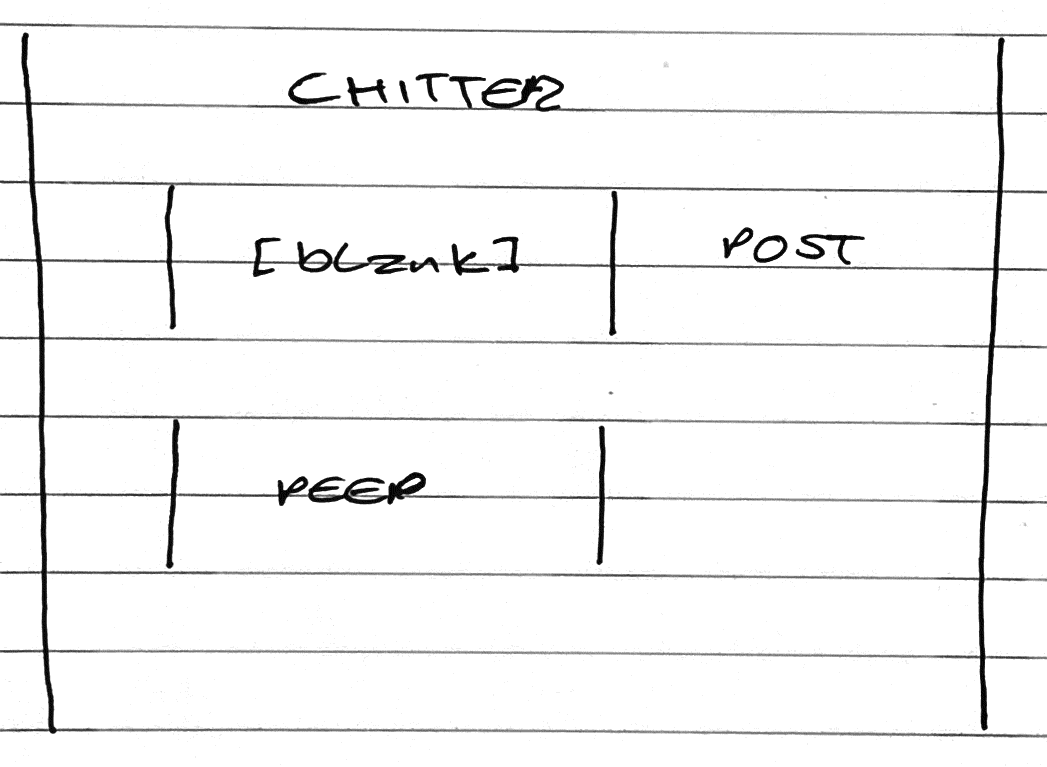 CHITTER
[blank] POST
PEEP